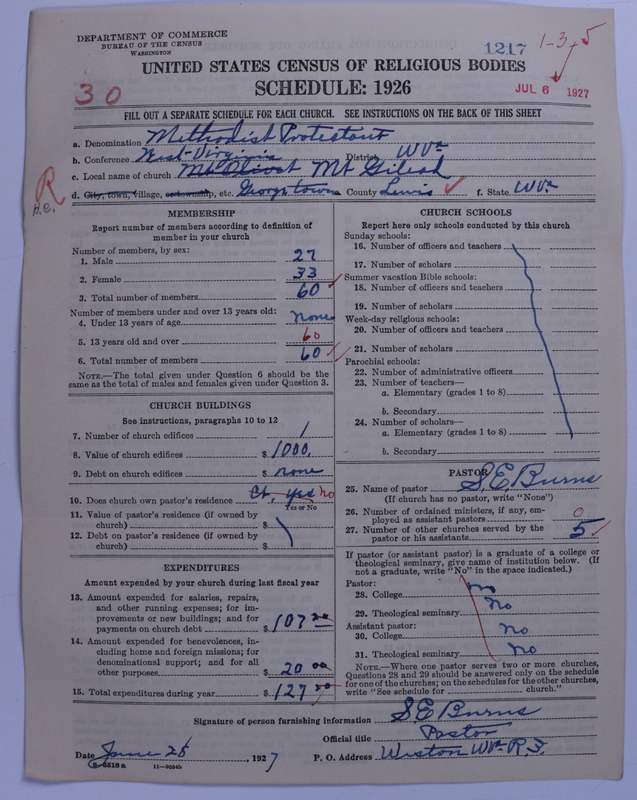 DEPARTMENT OF COMMERCE
BUREAU OF THE CENSUS
WASHINGTON
1217
1-3-5
UNITED STATES CENSUS OF RELIGIOUS BODIES
30
SCHEDULE: 1926
JUL 6 1927
FILL OUT A SEPARATE SCHEDULE FOR EACH CHURCH. SEE INSTRUCTIONS ON THE BACK OF THIS SHEET
a. Denomination Methodist Protestant
b. Conference West-Virginia District WVa
c. Local name of church Mt Olivet Mt Gilead
R
H.C.
d. City, town, village, or township, etc. Georgetown County Lewis f. State WVa
MEMBERSHIP
Report number of members according to definition of
member in your church
Number of members, by sex:
1. Male 27
2. Female 33
3. Total number of members 60
Number of members under and over 13 years old:
4. Under 13 years of age none
5. 13 years old and over 60
6. Total number of members 60
NOTE.—The total given under Question 6 should be the
same as the total of males and females given under Question 3.
CHURCH BUILDINGS
See instructions, paragraphs 10 to 12
7. Number of church edifices 1
8. Value of church edifices $ 1000.
9. Debt on church edifices $ none
10. Does church own pastor's residence Ct. yes no
Yes or No
11. Value of pastor's residence (if owned by
church) $
12. Debt on pastor's residence (if owned by
church) $
EXPENDITURES
Amount expended by your church during last fiscal year
13. Amount expended for salaries, repairs,
and other running expenses; for im-
provements or new buildings; and for
payments on church debt $ 107 20
14. Amount expended for benevolences, in-
cluding home and foreign missions; for
denominational support; and for all
other purposes $ 20 00
15. Total expenditures during year $ 127 20
CHURCH SCHOOLS
Report here only schools conducted by this church
Sunday schools:
16. Number of officers and teachers
17. Number of scholars
Summer vacation Bible schools:
18. Number of officers and teachers
19. Number of scholars
Week-day religious schools:
20. Number of officers and teachers
21. Number of scholars
Parochial schools:
22. Number of administrative officers
23. Number of teachers—
a. Elementary (grades 1 to 8)
b. Secondary
24. Number of scholars—
a. Elementary (grades 1 to 8)
b. Secondary
PASTOR
25. Name of pastor S.E. Burns
(If church has no pastor, write "None")
26. Number of ordained ministers, if any, em-
ployed as assistant pastors 0
27. Number of other churches served by the
pastor or his assistants 5
If pastor (or assistant pastor) is a graduate of a college or
theological seminary, give name of institution below. (If
not a graduate, write "No" in the space indicated.)
Pastor:
28. College no
29. Theological seminary No
Assistant pastor:
30. College No
31. Theological seminary No
NOTE.—Where one pastor serves two or more churches,
Questions 28 and 29 should be answered only on the schedule
for one of the churches; on the schedules for the other churches,
write "See schedule for church."
Signature of person furnishing information S.E Burns
Official title Pastor
Date June 25, 1927 P. O. Address Weston WVa R.3.
8-6518a 11-9664b